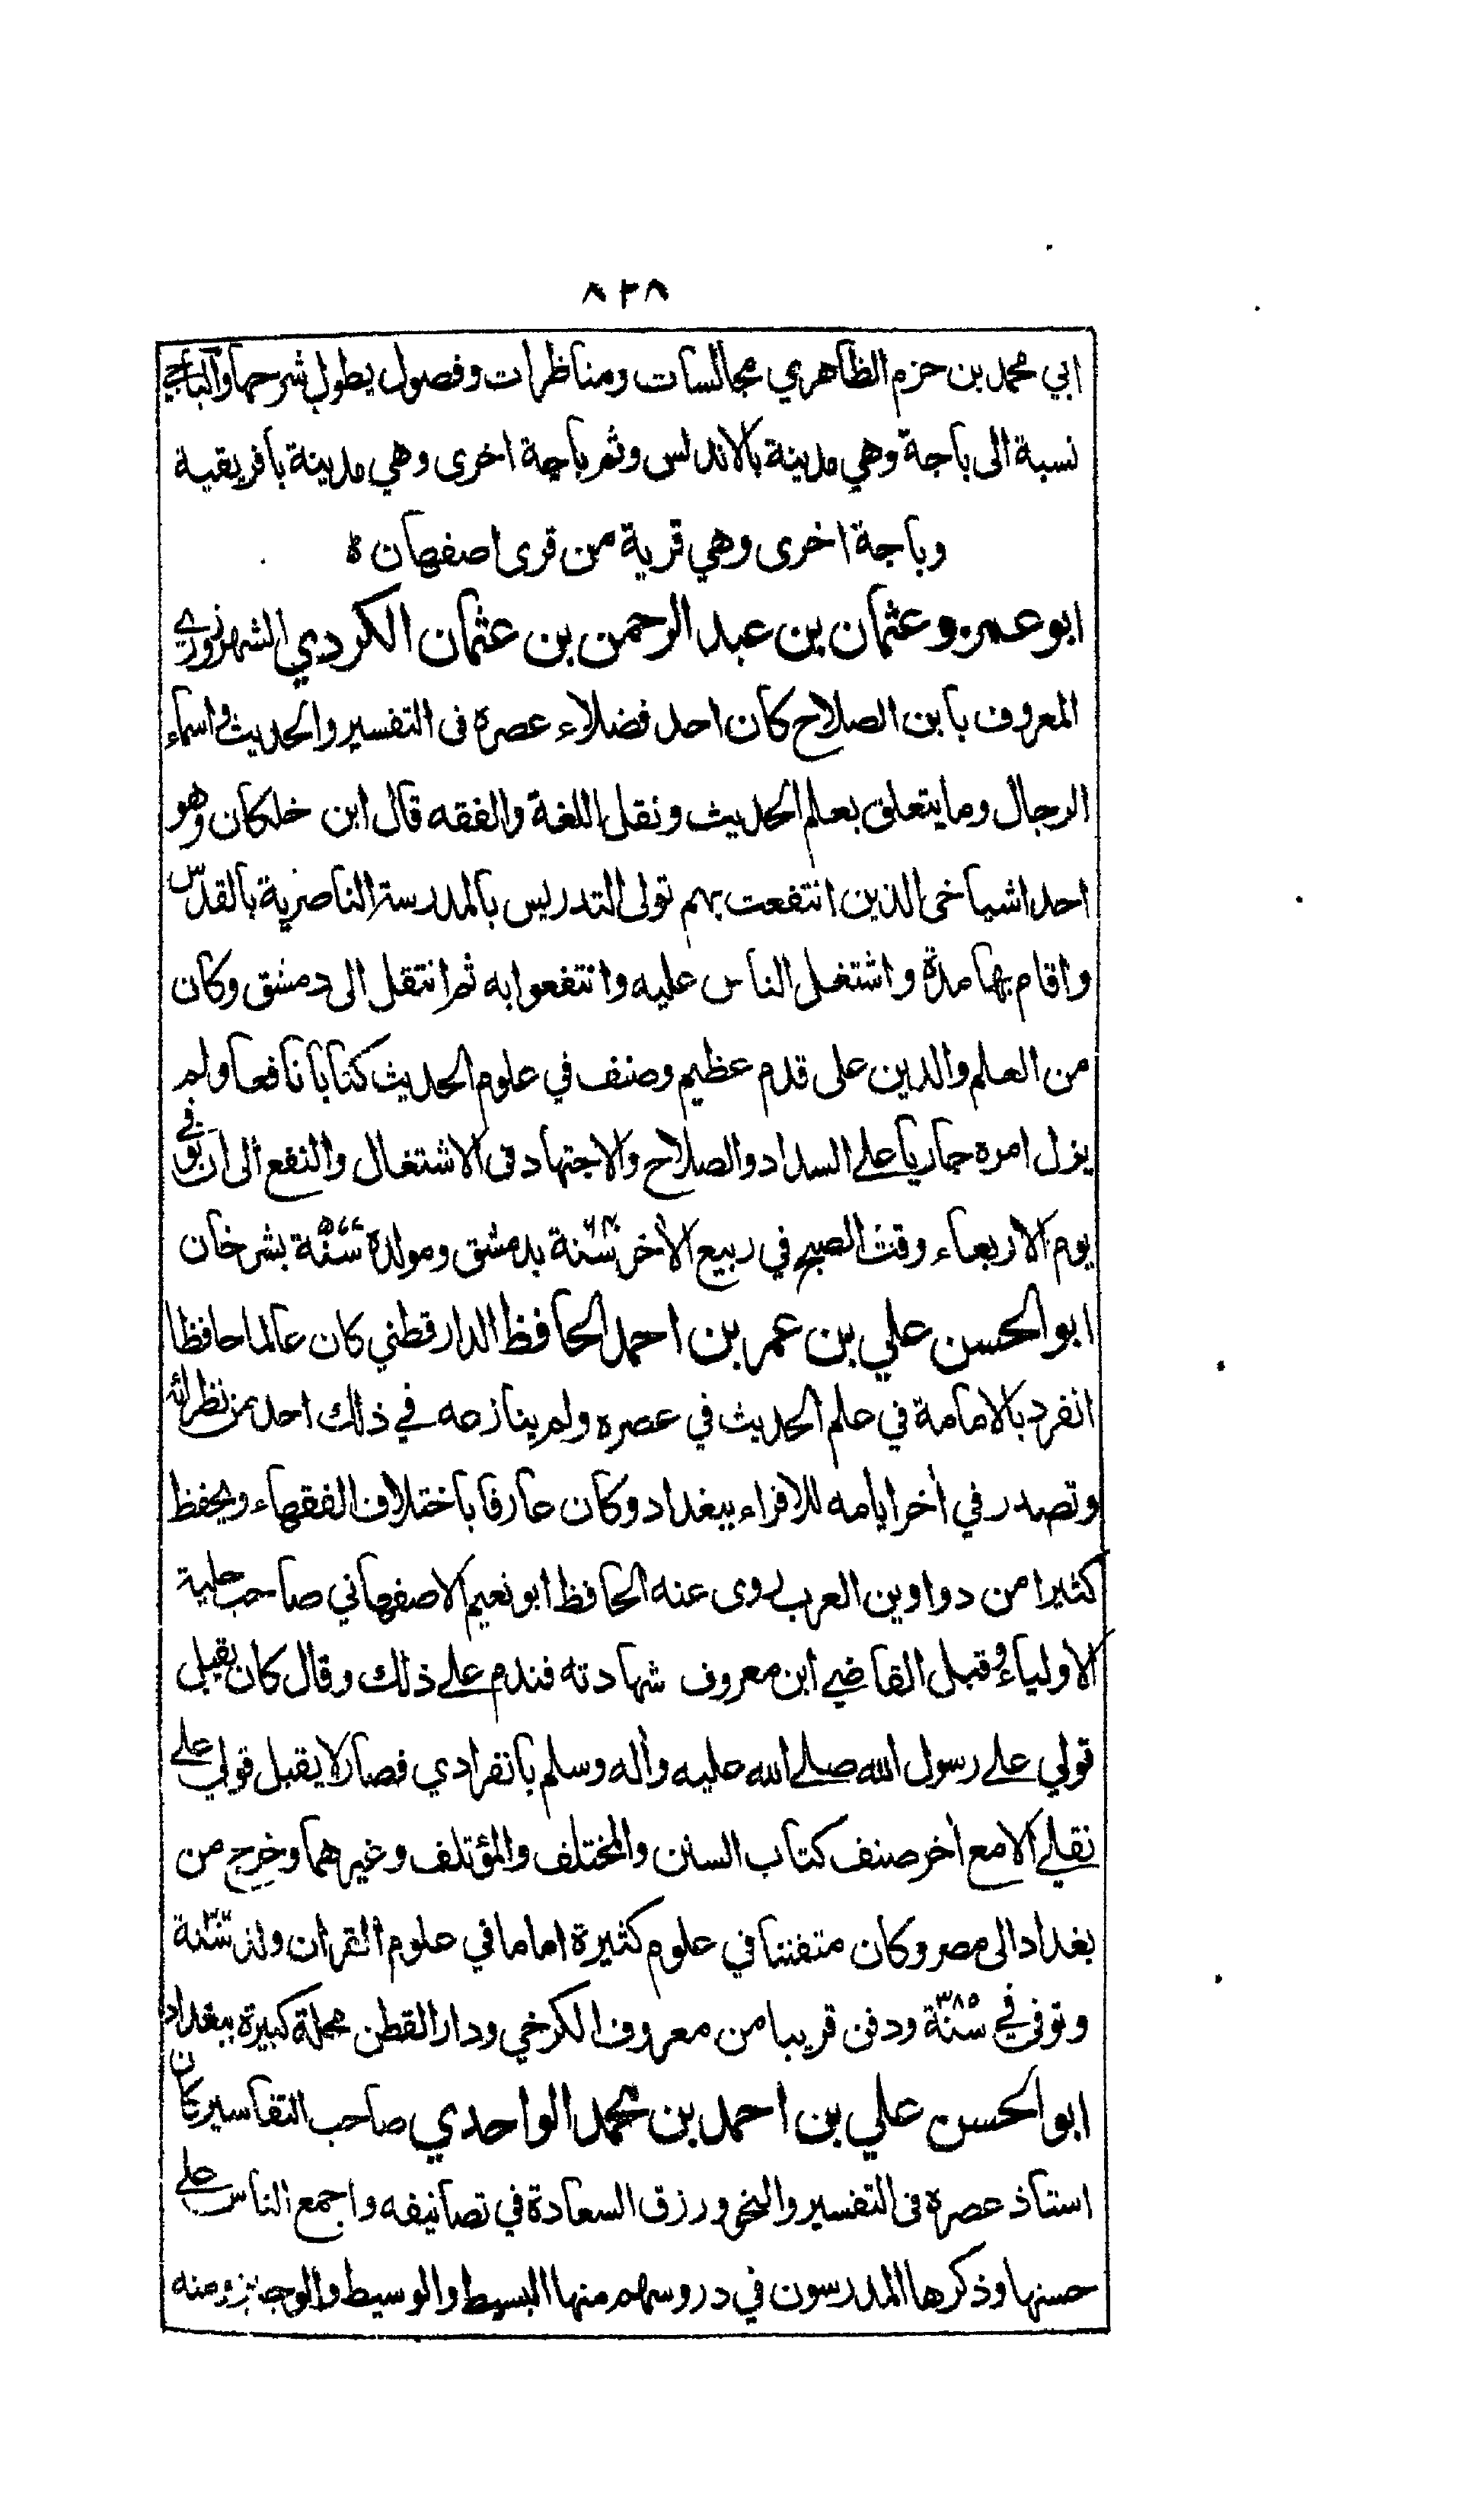 ٨٢٨
ابي محمد بن حزم الظاهري مجالسات ومناظرات وفصول يطول شرحها والباجي
نسبة الى باجة وهي مدينة بالاندلس وثم باجة اخرى وهي مدينة بافريقية
وباجة اخرى وهي قرية من قرى اصفهان ه
ابو عمرو عثمان بن عبد الرحمن بن عثمان الكردي الشهرزوري
المعروف بابن الصلاح كان احد فضلاء عصره فى التفسير والحديث واسماء
الرجال وما يتعلق بعلم الحديث ونقل اللغة والفقه قال ابن خلكان وهو
احد اشياخى الذين انتفعت بهم تولى التدريس بالمدرسة الناصرية بالقدس
واقام بها مدة واشتغل الناس عليه وانتفعوا به ثم انتقل الى دمشق وكان
من العلم والدين على قدم عظيم وصنف في علوم الحديث كتابا نافعا ولم
يزل امره جاريا على السداد والصلاح والاجتهاد فى الاشتغال والنفع الى ان توفي
يوم الاربعاء وقت الصبح في ربيع الأخر سنة بدمشق ومولده سنة ٥٧٧ بشرخان
ابو الحسن علي بن عمر بن احمد الحافظ الدارقطني كان عالما حافظا
انفرد بالامامة في علم الحديث في عصره ولم ينازعه في ذلك احد من نظرائه
وتصدر في أخر ايامه للاقراء ببغداد وكان عارفا باختلاف الفقهاء ويحفظ
كثيرا من دواوين العرب روى عنه الحافظ ابو نعيم الاصفهاني صاحب حلية
الاولياء وقبل القاضي ابن معروف شهادته فندم على ذلك وقال كان يقبل
قولي على رسول الله صلى الله عليه وأله وسلم بانفرادي فصار لا يقبل قولي على
نقلي الا مع أخر صنف كتاب السنن والمختلف والمؤتلف وغيرهما وخرج من
بغداد الى مصر وكان متفننا في علوم كثيرة اماما في علوم القرأن ولد سنة
وتوفى في سنة ٣٨٥ ودفن قريبا من معروف الكرخي ودار القطن محلة كبيرة ببغداد
ابو الحسن علي بن احمد بن محمد الواحدي صاحب التفاسير كان
استاذ عصره فى التفسير والنحو ورزق السعادة في تصانيفه واجمع الناس على
حسنها وذكرها المدرسون في دروسهم منها البسيط والوسيط والوجيز ومنه